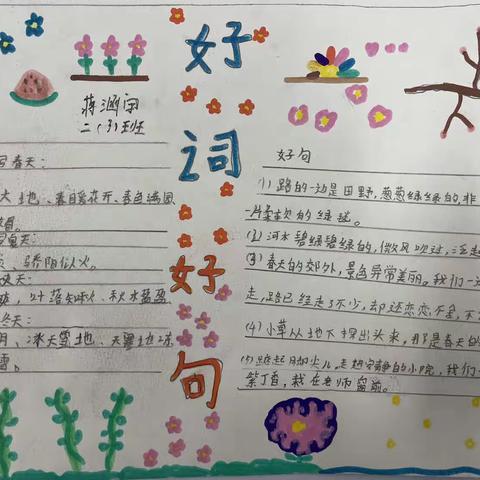 好词好句
蒋涵
二（3）班
春天：
大地、春暖花开、春色满园
夏天：
骄阳似火。
天：
叶落知秋、秋水盈盈
冬天：
冰天雪地、天寒地冻
雪。
好句
(1) 路的一边是田野，葱葱绿绿的，非
一片柔软的绿毯。
(2) 河水碧绿碧绿的，微风吹过，泛起
(3) 春天的郊外，景色异常美丽。我们一
走，路已经走了不少，却还恋恋不舍，不
(4) 小草从地下探出头来，那是春天的
(5) 踮起脚尖儿，走进安静的小院，我们
紫丁香，栽在老师窗前。